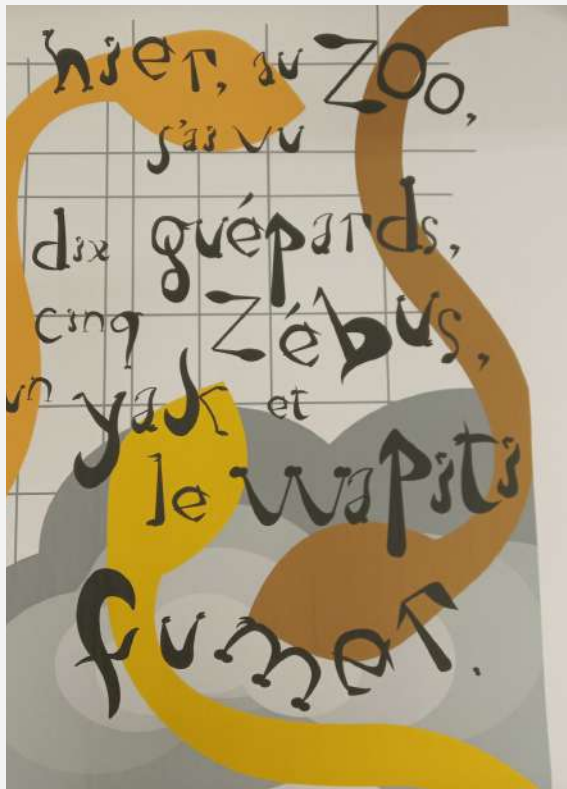 hier, au zoo,
j'ai vu
dix guépards,
cinq zébus,
un yak et
le wapiti
fumer.